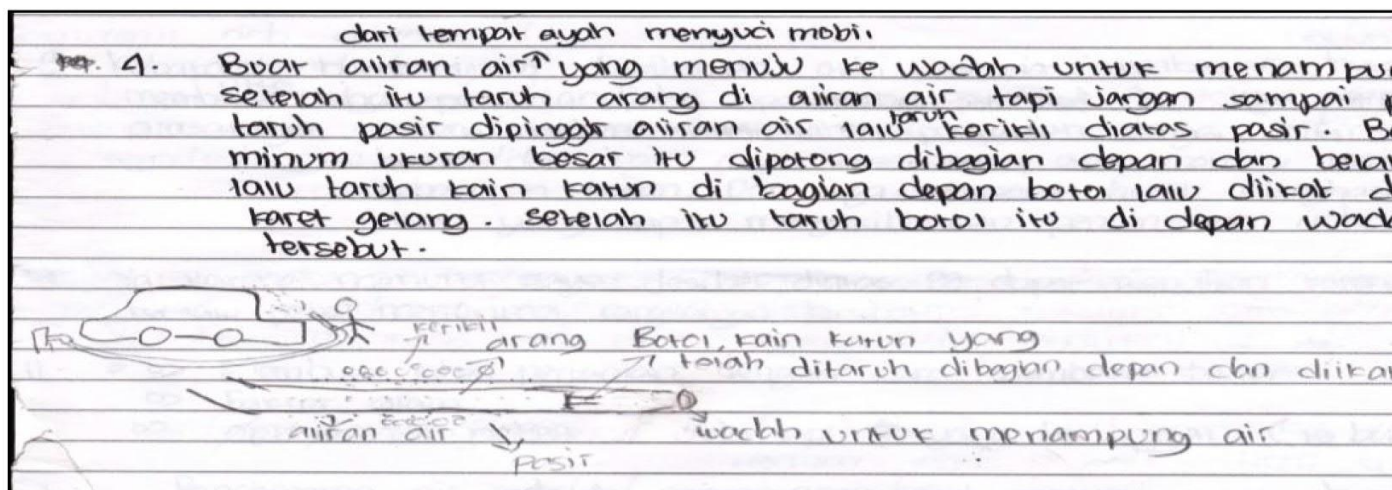 dari tempat ayah menyuci mobi.
4. Buat aliran air yang menuju ke wadah untuk menampu
setelah itu taruh arang di aliran air tapi jangan sampai
taruh pasir dipinggir aliran air lalu taruh kerikil diatas pasir. B
minum ukuran besar itu dipotong dibagian depan dan bela
lalu taruh kain katun di bagian depan botol lalu diikat d
karet gelang. setelah itu taruh botol itu di depan wada
tersebut.
kerikil
arang Botol, kain katun yang
telah ditaruh dibagian depan dan diikat
aliran air wadah untuk menampung air
pasir